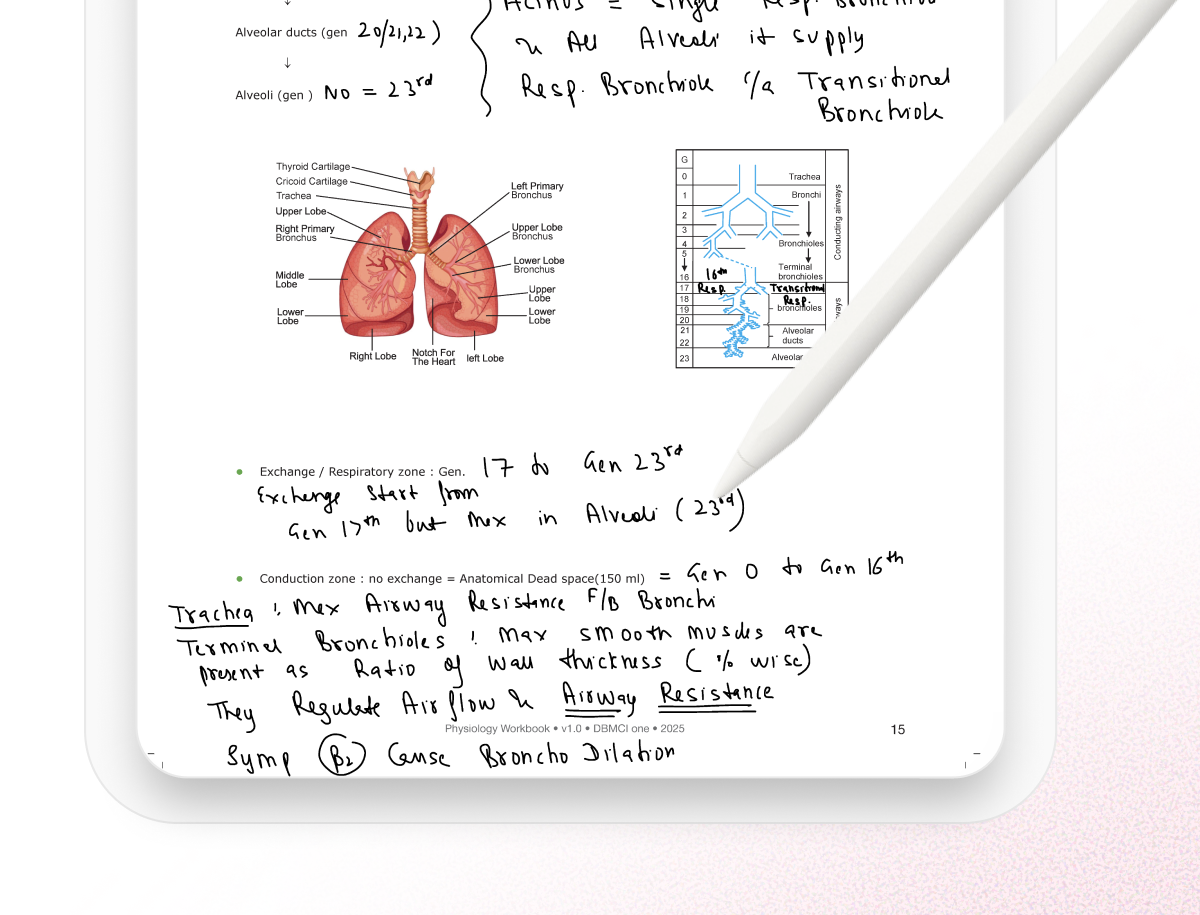 Acinus = Single Resp. Bronchiole
Alveolar ducts (gen 20/21,22)
& All Alveoli it supply
↓
Alveoli (gen ) No = 23rd
Resp. Bronchiole c/a Transitional
Bronchiole
Thyroid Cartilage
Cricoid Cartilage
Trachea
Upper Lobe
Right Primary
Bronchus
Middle
Lobe
Lower
Lobe
Left Primary
Bronchus
Upper Lobe
Bronchus
Lower Lobe
Bronchus
Upper
Lobe
Lower
Lobe
Right Lobe
Notch For
The Heart
left Lobe
G
0 Trachea
1 Bronchi
2
3
4 Bronchioles
5
Terminal
16 16th bronchioles
17 Resp. Transitional
18 Resp.
19 bronchioles
20
21 Alveolar
22 ducts
23 Alveolar
Conducting airways
ways
• Exchange / Respiratory zone : Gen. 17 to Gen 23rd
Exchange start from
Gen 17th but Mex in Alveoli (23rd)
• Conduction zone : no exchange = Anatomical Dead space(150 ml) = Gen 0 to Gen 16th
Trachea : Mex Airway Resistance F/B Bronchi
Terminel Bronchioles : Max smooth muscles are
present as Ratio of wall thickness (% wise)
They Regulate Air flow & Airway Resistance
Physiology Workbook • v1.0 • DBMCI one • 2025
15
Symp β2 Cause Broncho Dilation